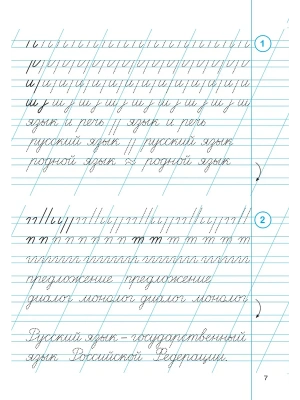 1
язык и речь // язык и речь
русский язык // русский язык
родной язык ≈ родной язык
2
п п п п п п п п т т т т т т т
предложение предложение
диалог монолог диалог монолог
Русский язык – государственный
язык Российской Федерации.
7